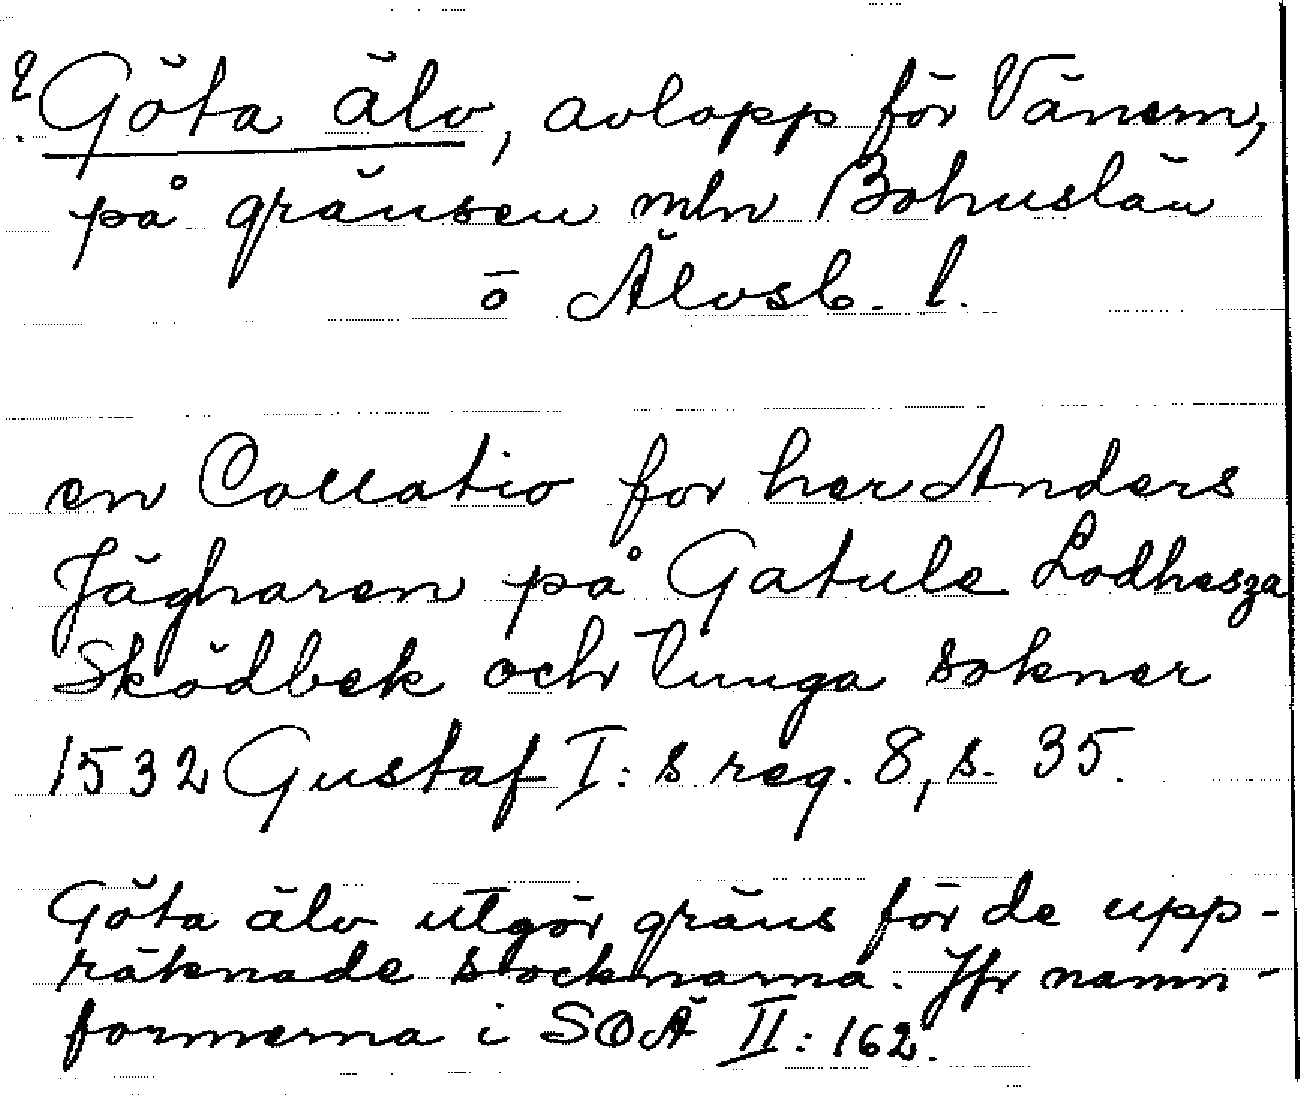 ? Göta älv, avlopp för Vänern,
på gränsen mln Bohuslän
o Älvsb. l.
en Collatio for her Anders
Jägharen på Gatule Lodhesza
Sködbek och Tunga sokner
1532 Gustaf I:s reg. 8, s. 35.
Göta älv utgör gräns för de upp-
räknade socknarna. Jfr namn-
formerna i SOÄ II:162.